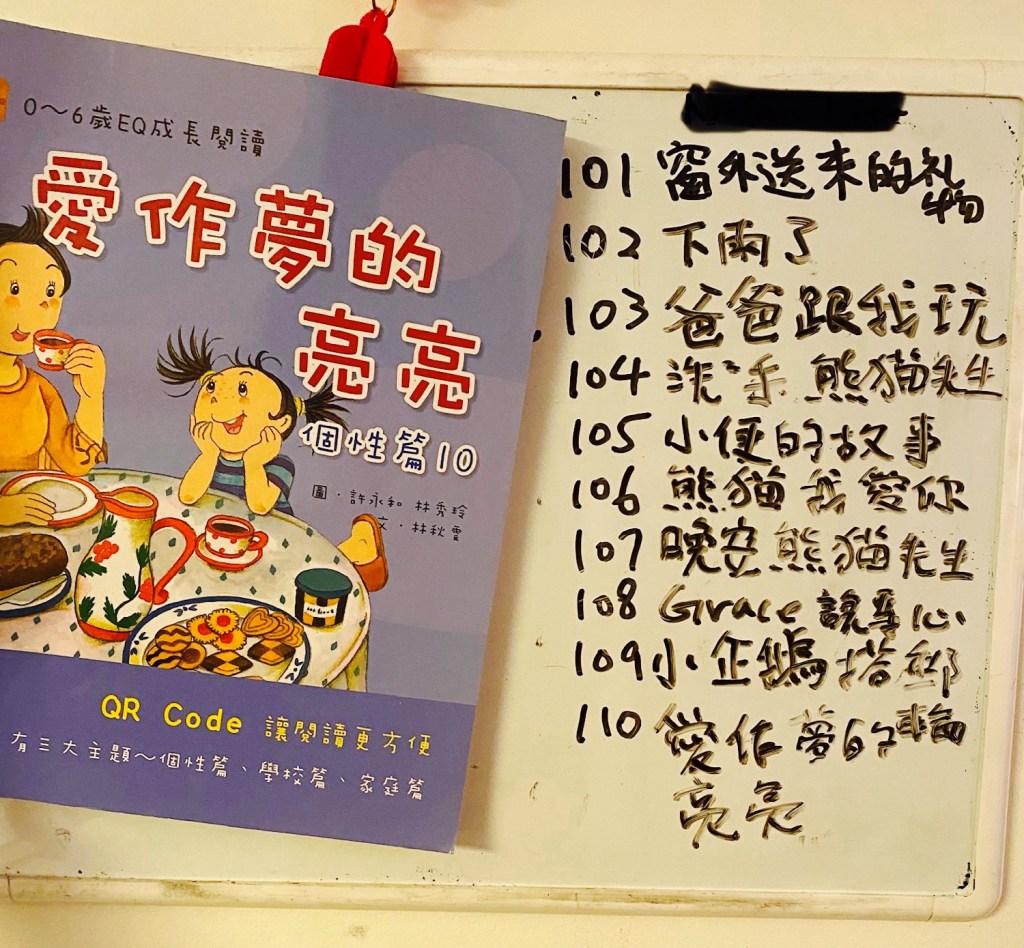 0～6歲EQ成長閱讀
愛作夢的
亮亮
個性篇10
圖·許永和 林秀玲
文·林秋
QR Code 讓閱讀更方便
有三大主題～個性篇、學校篇、家庭篇
101 窗外送來的礼
物
102 下雨了
103 爸爸跟我玩
104 洗ミ手 熊猫先生
105 小便的故事
106 熊猫 我愛你
107 晚安熊猫先生
108 Grace 說 心
109 小企鵝搭郵
輪
110 愛作夢的
亮亮